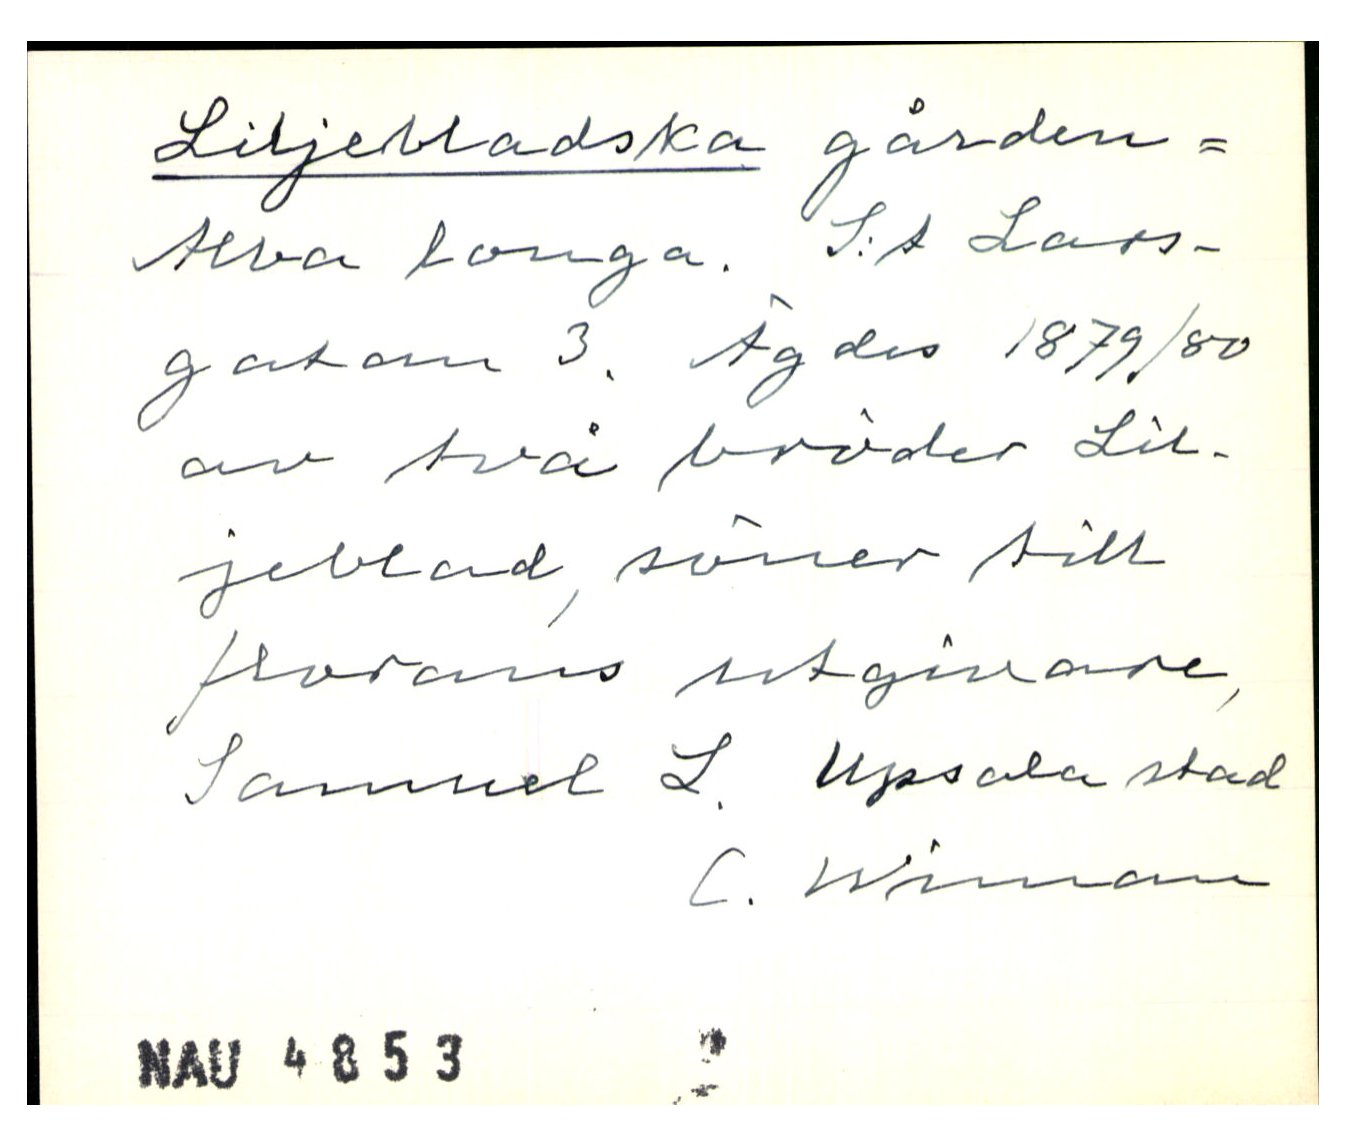 Liljebladska gården =
Alba longa. S:t Lars-
gatan 3. Ägdes 1879/80
av två bröder Lil-
jeblad, söner till
florans utgivare,
Samuel L. Upsala stad
C. Wiman
NAU 4853